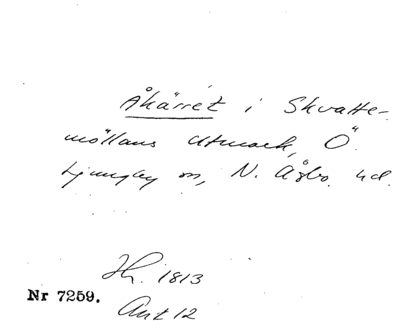 Åkärret i Skvatte-
möllans Utmark, Ö.
Ljungby sn, N. Åsbo hd.
Hr. 1813
Nr 7259.
Ant 12